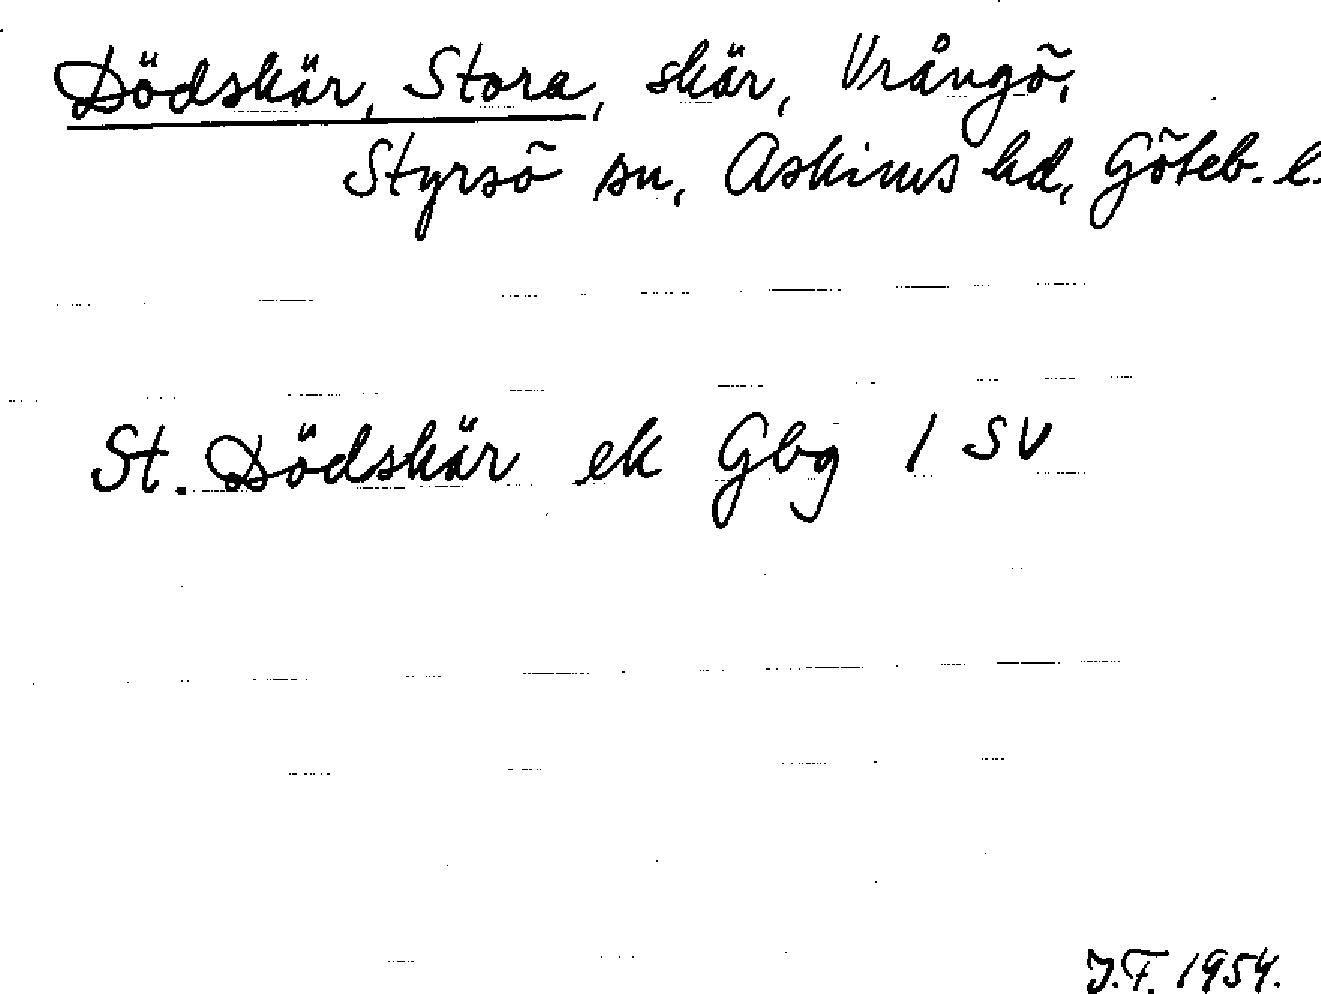 Dödskär, Stora, skär, Vrångö,
Styrsö sn, Askims hd, Göteb. l.
St. Dödskär ek Gbg 1 SV
J.F. 1954.